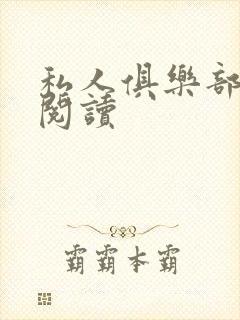 私人俱樂部
閱讀
霸霸本霸